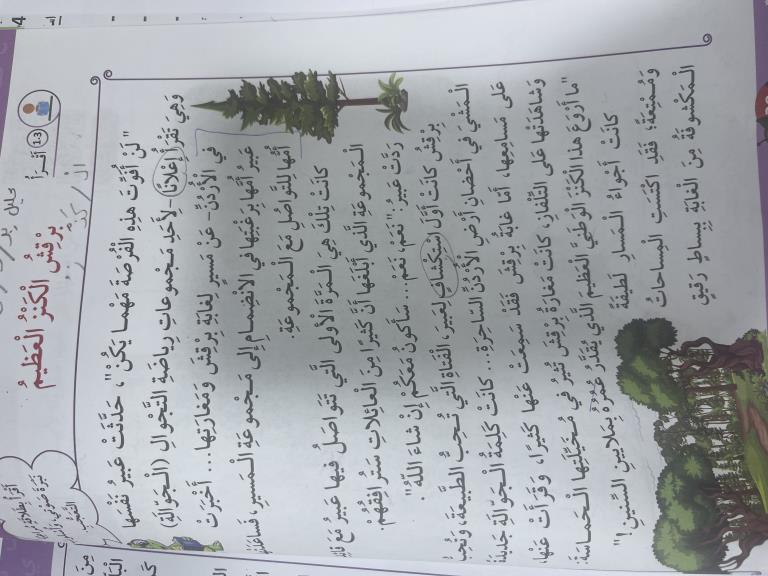 (1.3) أَقْرَأُ
بِرْقِشُ الْكَنْزُ الْعَظِيمُ
"لَنْ أُفَوِّتَ هذِهِ الْفُرْصَةَ مَهْما يَكُنْ"، حَدَّثَتْ عَبيرُ نَفْسَها
وَهِيَ تَقْرَأُ إِعْلانًا -لِأَحَدِ مَجْموعاتِ رِياضَةِ التَّجْوالِ (الْجَوّالَةِ)
في الْأُرْدُنِّ- عَنْ مَسيرٍ لِغابَةِ بِرْقِشَ وَمَغارَتِها... أَخْبَرَتْ
عَبيرُ أُمَّها بِرَغْبَتِها في الِانْضِمامِ إِلى مَجْموعَةِ الْمَسيرِ، فَساعَدَتْها
أُمُّها لِلتَّواصُلِ مَعَ الْمَجْموعَةِ.
كانَتْ تِلْكَ هِيَ الْمَرَّةَ الْأولى الَّتي تَتَواصَلُ فيها عَبيرُ مَعَ
الْمَجْموعَةِ الَّذي أَبْلَغَها أَنَّ كَثيرًا مِنَ الْعائِلاتِ سَتُرافِقُهُمْ.
رَدَّتْ عَبيرُ: "نَعَمْ، نَعَمْ... سَأَكونُ مَعَكُمْ إِنْ شاءَ اللّٰهُ".
بِرْقِشُ كانَتْ أَوَّلَ اسْتِكْشافٍ لِعَبيرَ، الْفَتاةِ الَّتي تُحِبُّ الطَّبيعَةَ، وَتُحِبُّ
الْمَشْيَ في أَحْضانِ أَرْضِ الْأُرْدُنِّ السّاحِرَةِ... كانَتْ كَلِمَةُ الْجَوّالَةِ جَديدَةً
عَلى مَسامِعِها، أَمّا غابَةُ بِرْقِشَ فَقَدْ سَمِعَتْ عَنْها كَثيرًا، وَقَرَأَتْ عَنْها،
وَشاهَدَتْها عَلى التِّلْفازِ، كانَتْ مَغارَةُ بِرْقِشَ تُثيرُ في مُخَيِّلَتِها الْحَماسَةَ:
"ما أَرْوَعَ هذا الْكَنْزَ الْوَطَنِيَّ الْعَظيمَ الَّذي يُقَدَّرُ عُمُرُهُ بِمَلايينِ السِّنينَ!"
كانَتْ أَجْواءُ الْمَسارِ لَطيفَةً
وَمُمْتِعَةً؛ فَقَدِ اكْتَسَتِ الْمِساحاتُ
الْمَكْشوفَةُ مِنَ الْغابَةِ بِبِساطٍ رَقيقٍ